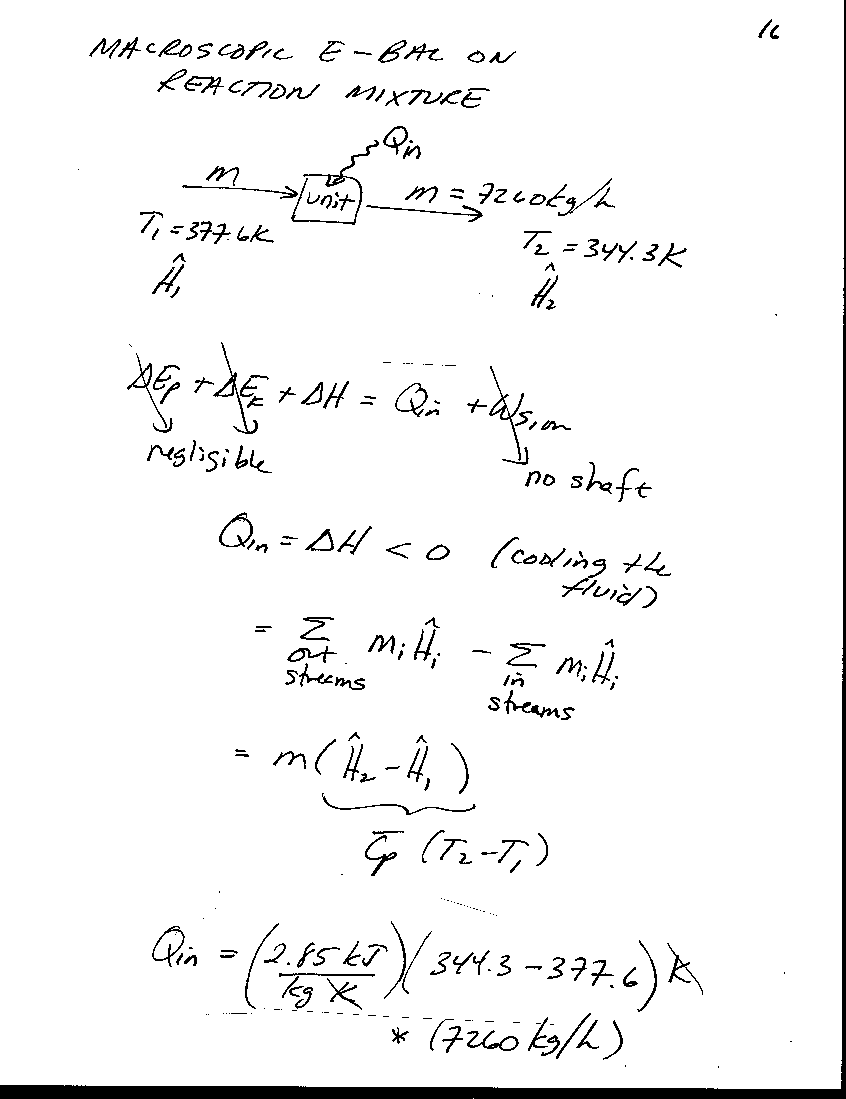 16
MACROSCOPIC E-BAL ON
REACTION MIXTURE
Qin
m
unit
m = 7260 kg/h
T₁ = 377.6K
T₂ = 344.3K
Ĥ₁
Ĥ₂
ΔEp + ΔEk + ΔH = Qin + Ws,on
negligible
no shaft
Qin = ΔH < 0 (cooling the
fluid)
= Σ mᵢĤᵢ - Σ mᵢĤᵢ
out streams
in streams
= m(Ĥ₂ - Ĥ₁)
C̄p (T₂-T₁)
Qin = (2.85 kJ / kg K)(344.3-377.6) K
* (7260 kg/h)